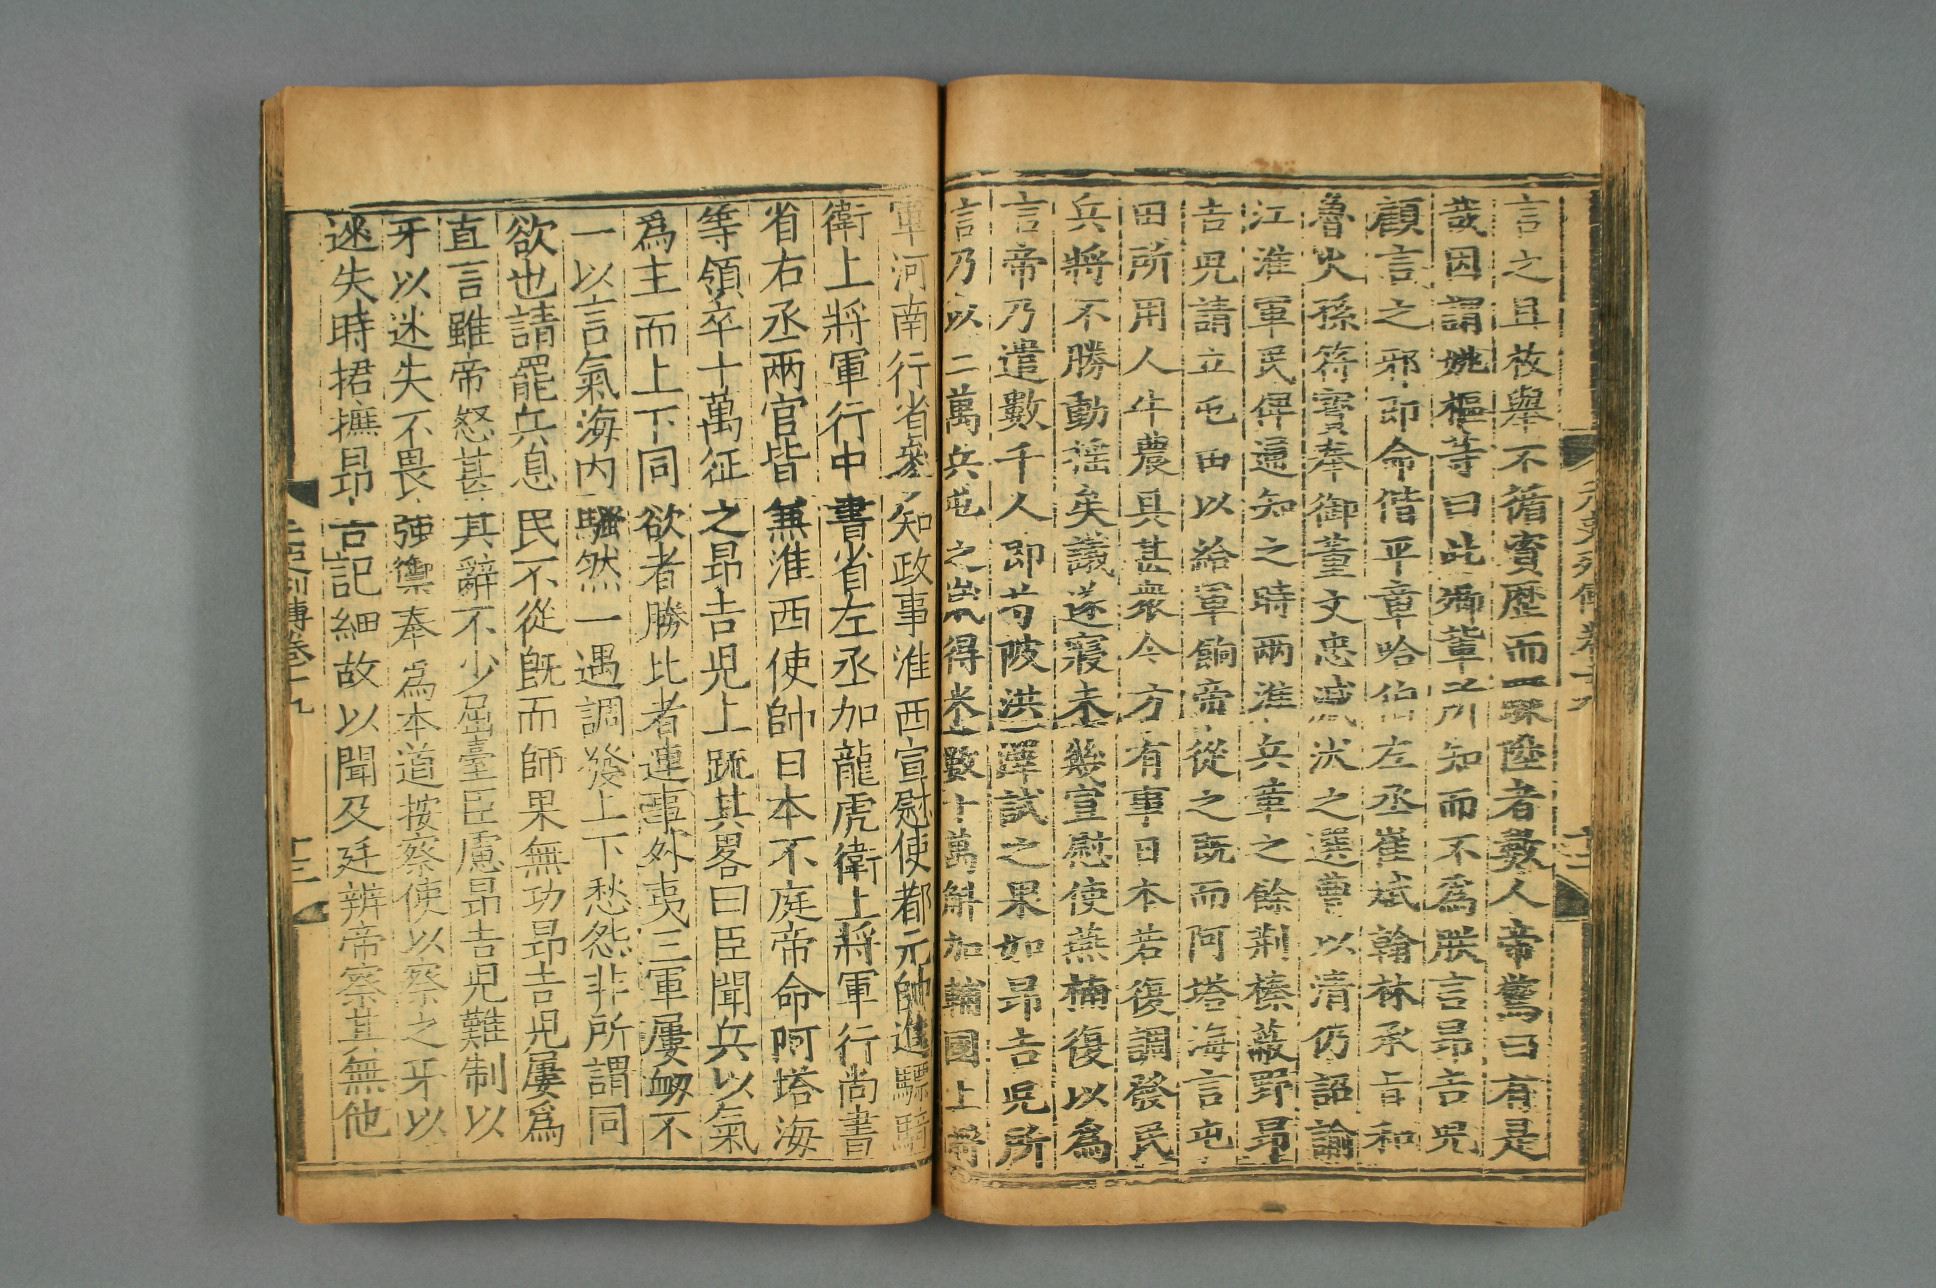 言之且枚舉不循資歷而躐陞者數人帝驚曰有是
哉因謂姚樞等曰此卿輩所知而不爲朕言昂吉兒
顧言之邪即命偕平章哈伯左丞崔斌翰林承旨和
魯火孫符寶奉御董文忠減汰之選曹以清仍詔諭
江淮軍民俾遍知之時兩淮兵革之餘荆榛蔽野昂
吉兒請立屯田以給軍餉帝從之既而阿塔海言屯
田所用人牛農具甚衆今方有事日本若復調發民
兵將不勝動搖矣議遂寢未幾宣慰使燕楠復以爲
言帝乃遣數千人即芍陂洪澤試之果如昂吉兒所
言乃以二萬兵屯之歲得米數十萬斛加輔國上將
軍河南行省參知政事淮西宣慰使都元帥進驃騎
衛上將軍行中書省左丞加龍虎衛上將軍行尚書
省右丞兩官皆兼淮西使帥日本不庭帝命阿塔海
等領卒十萬征之昂吉兒上䟽其畧曰臣聞兵以氣
爲主而上下同欲者勝比者連事外夷三軍屢衂不
可以言氣海内騷然一遇調發上下愁怨非所謂同
欲也請罷兵息民不從既而師果無功昂吉兒屢爲
直言雖帝怒甚其辭不少屈臺臣慮昂吉兒難制以
牙以迷失不畏強禦奉爲本道按察使以察之牙以
迷失時捃摭昂吉兒細故以聞及廷辨帝察其無他
元史列傳卷十九
十三